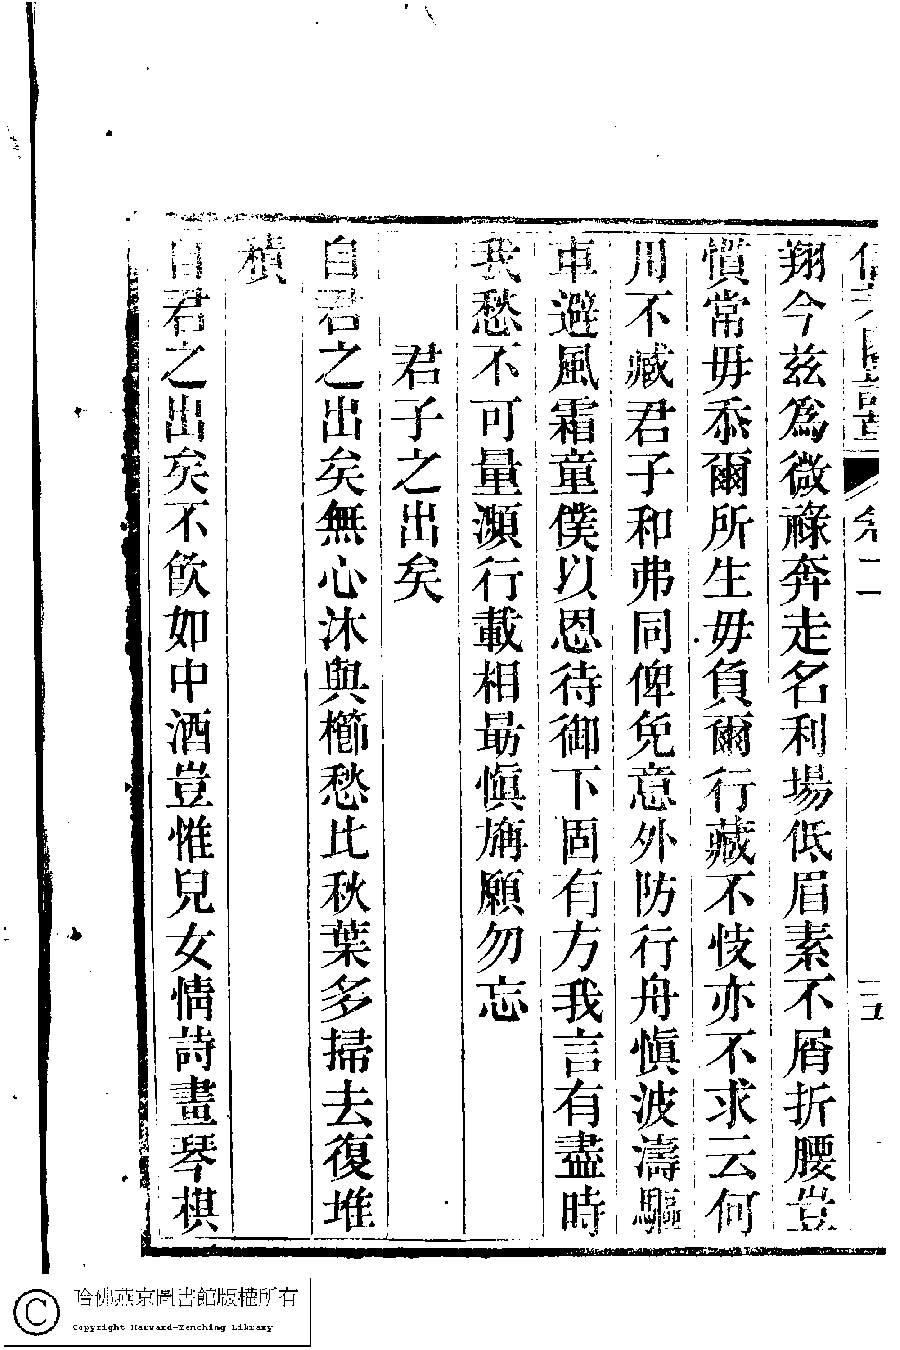 卷二
翔今茲爲微祿奔走名利場低眉素不屑折腰豈
慣常毋忝爾所生毋負爾行藏不忮亦不求云何
用不臧君子和弗同俾免意外防行舟愼波濤驅
車避風霜童僕以恩待御下固有方我言有盡時
我愁不可量瀕行載相勗愼旃願勿忘
君子之出矣
自君之出矣無心沐與櫛愁比秋葉多掃去復堆
積
自君之出矣不飮如中酒豈惟兒女情詩畫琴棋
哈佛燕京圖書館版權所有
Copyright Harvard-Yenching Library